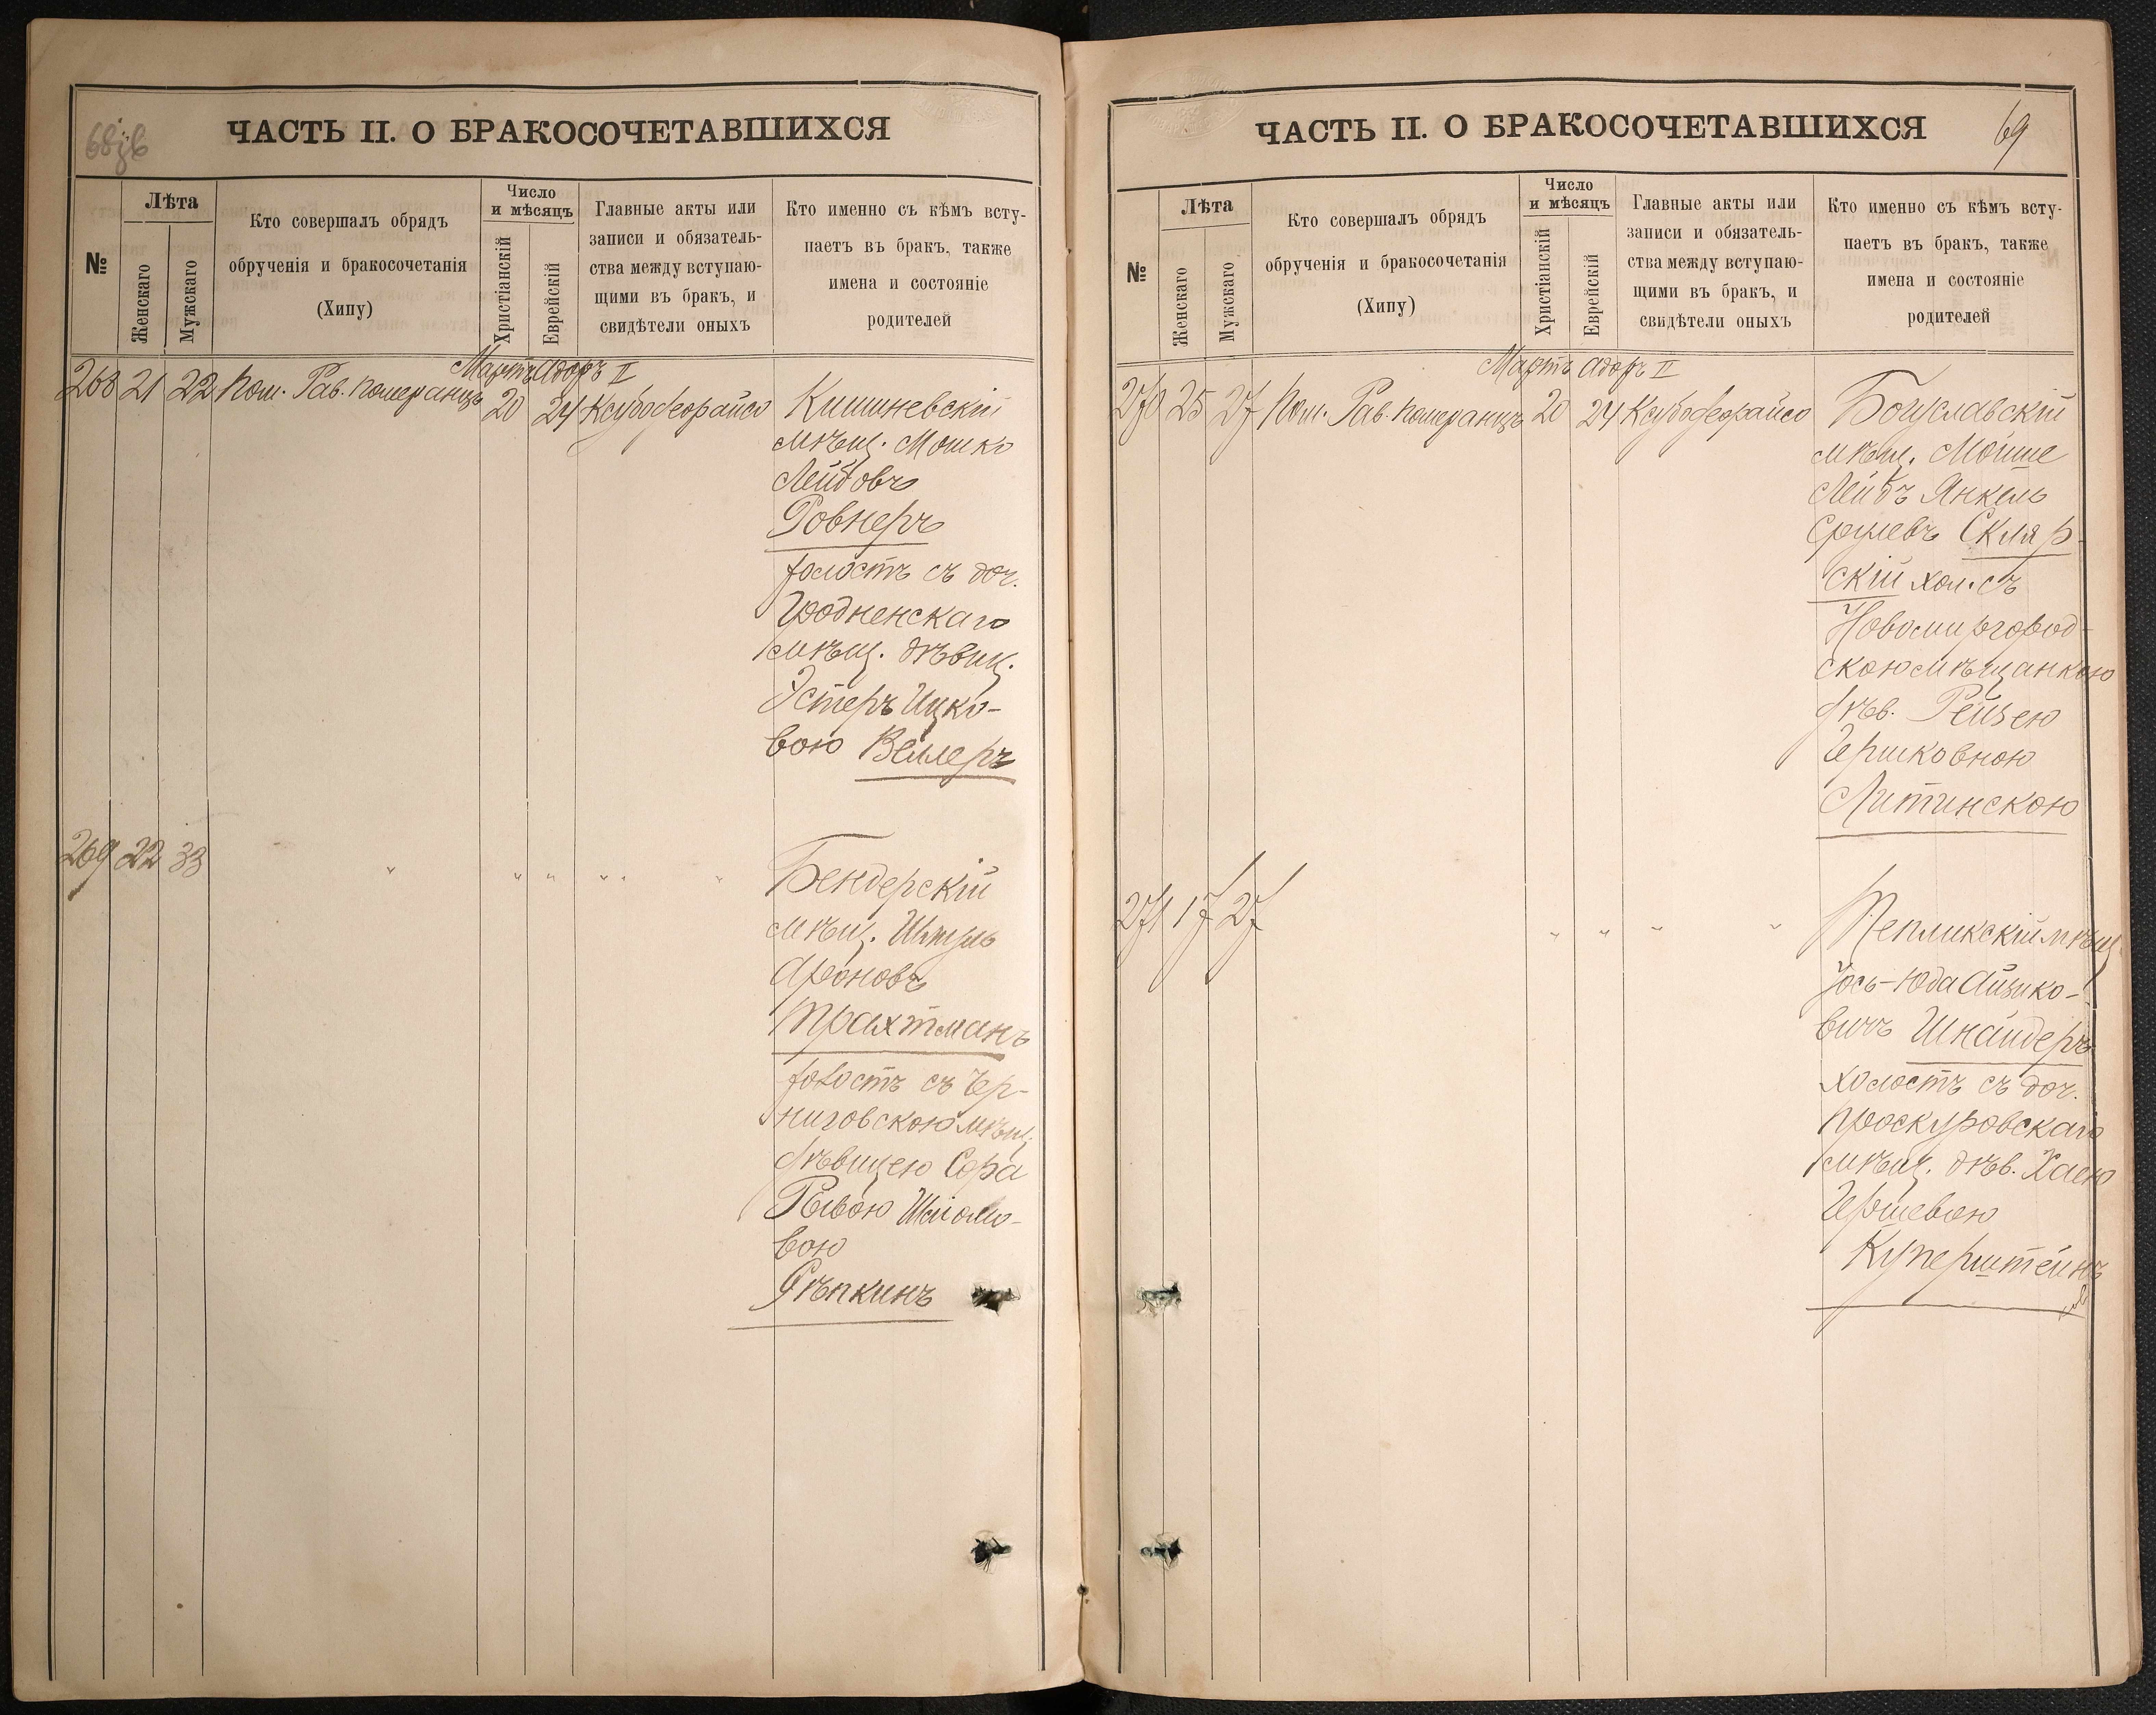 68зв
ЧАСТЬ II. О БРАКОСОЧЕТАВШИХСЯ
№
Лѣта
Женскаго
Мужскаго
Кто совершалъ обрядъ
обрученія и бракосочетанія
(Хипу)
Число
и мѣсяцъ
Христіанскій
Еврейскій
Главные акты или
записи и обязатель-
ства между вступаю-
щими въ бракъ, и
свидѣтели оныхъ
Кто именно съ кѣмъ всту-
паетъ въ бракъ, также
имена и состояніе
родителей
Мартъ Адоръ II
268 21 22 Пом. Рав. Померанцъ 20 24 Ксубо деорайсо Кишиневскій
мѣщ. Мошко
Лейбовъ
Ровнеръ
холостъ съ доч.
Гродненскаго
мѣщ. дѣвиц.
Эстеръ Ицко-
вою Веллеръ
269 22 33 " " " " " " Бендерскій
мѣщ. Шмуль
Ароновъ
Трахтманъ
холостъ съ Чер-
ниговскою мѣщ.
дѣвицею Сора
Рывою Шліомо-
вою
Рѣпкинъ
ЧАСТЬ II. О БРАКОСОЧЕТАВШИХСЯ
69
№
Лѣта
Женскаго
Мужскаго
Кто совершалъ обрядъ
обрученія и бракосочетанія
(Хипу)
Число
и мѣсяцъ
Христіанскій
Еврейскій
Главные акты или
записи и обязатель-
ства между вступаю-
щими въ бракъ, и
свидѣтели оныхъ
Кто именно съ кѣмъ всту-
паетъ въ бракъ, также
имена и состояніе
родителей
Мартъ Адоръ II
270 25 27 Пом. Рав. Померанцъ 20 24 Ксубо деорайсо Богуславскій
мѣщ. Мойше
Лейбъ Янкель
Срулевъ Скляр-
скій хол. съ
Новомиргород-
скою мѣщанкою
дѣв. Рейзею
Гершковною
Литинскою
271 17 27 " " " " Тепликскій мѣщ.
Іось-Юда Айзико-
вичъ Шнайдеръ
холостъ съ доч.
Проскуровскаго
мѣщ. дѣв. Хаею
Гершевою
Куперштейнъ